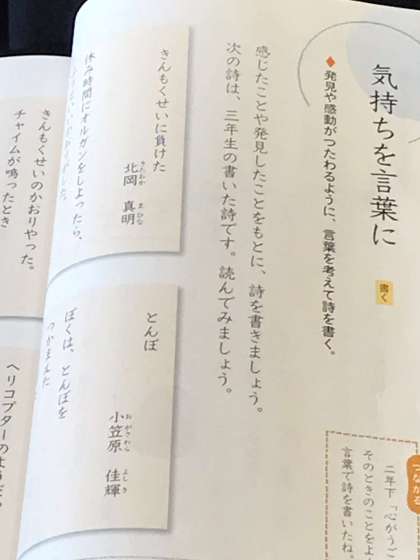 気持ちを言葉に
書く
◆発見や感動がつたわるように、言葉を考えて詩を書く。
感じたことや発見したことをもとに、詩を書きましょう。
次の詩は、三年生の書いた詩です。読んでみましょう。
つながる
二年下「心がうご
そのときのことをよ
言葉で詩を書いたね。
きんもくせいに負けた
北岡 真明
きたおか まひな
休み時間にオルガンをしよったら、
きんもくせいのかおりやった。
チャイムが鳴ったとき
とんぼ
小笠原 佳輝
おがさわら よしき
ぼくは、とんぼを
つかまえた
ヘリコプターのような